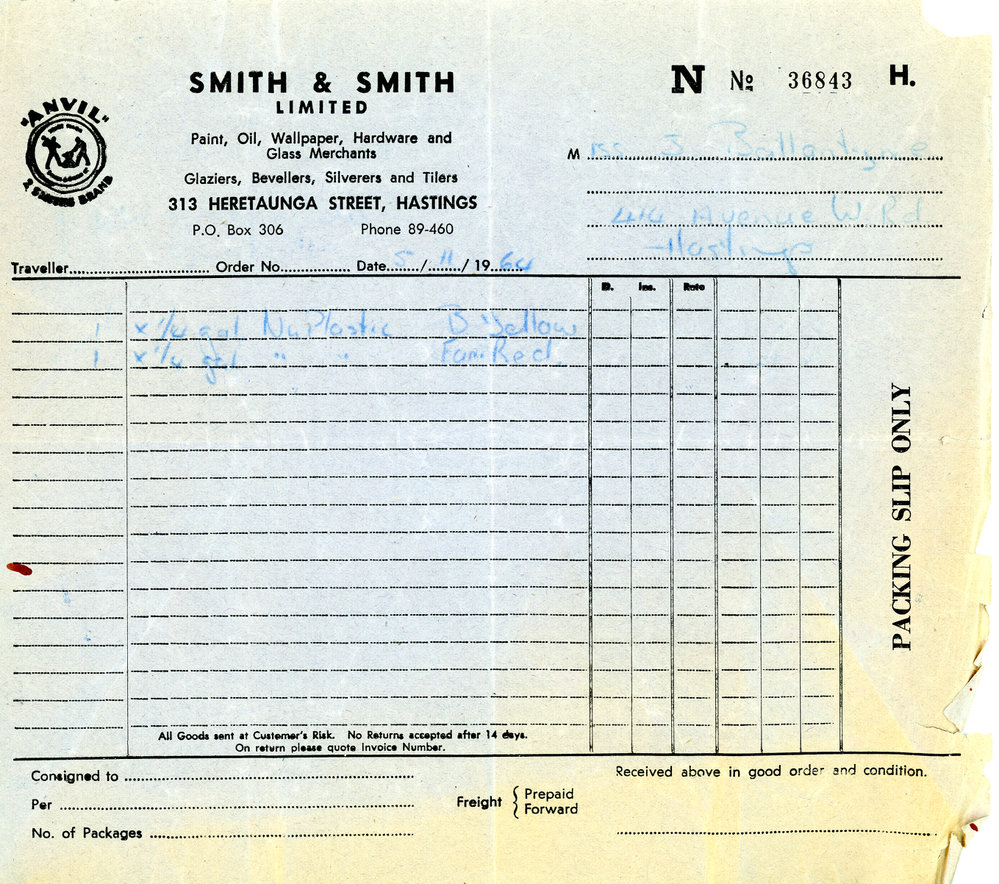 SMITH & SMITH
LIMITED
Paint, Oil, Wallpaper, Hardware and
Glass Merchants
Glaziers, Bevellers, Silverers and Tilers
313 HERETAUNGA STREET, HASTINGS
P.O. Box 306 Phone 89-460
"ANVIL"
2 SMITHS BRAND
N No 36843 H.
M iss J Ballantyne
414 Avenue W. Rd
Hastings
Traveller.............................. Order No............... Date 5 / 11 / 19 64
D. Ins. Rate
1 x 1/4 gal NuPlastic B Yellow
1 x 1/4 gal " " Fam. Red.
PACKING SLIP ONLY
All Goods sent at Customer's Risk. No Returns accepted after 14 days.
On return please quote Invoice Number.
Consigned to
Per
No. of Packages
Freight { Prepaid
Forward
Received above in good order and condition.